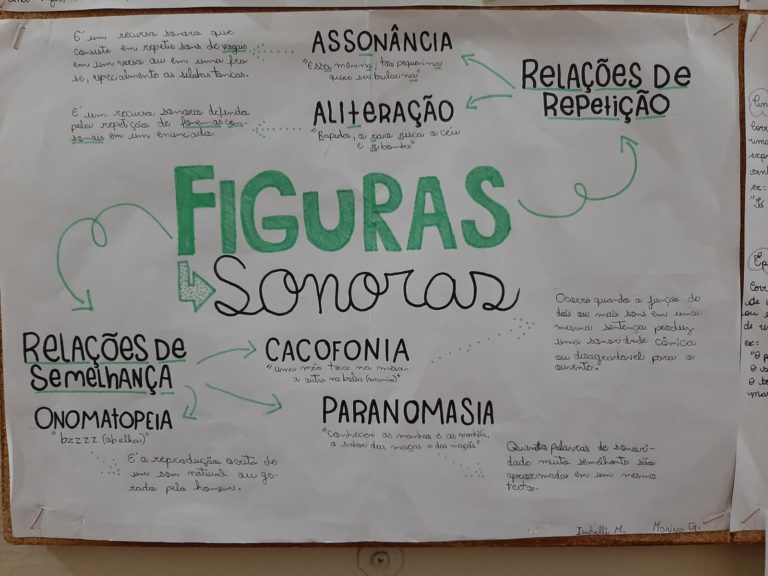 É um recurso sonoro que
consiste em repetir sons de vogais
em um verso ou em uma fra
se, especialmente as sílabas tônicas.
ASSONÂNCIA
"Essa menina, tão pequenina
quer ser bailarina"
RELAÇÕES DE
REPETIÇÃO
É um recurso sonoro definido
pela repetição de fonemas con-
sonais em um enunciado.
ALITERAÇÃO
"Rápido, o raio risca o céu
e ribomba"
FIGURAS
Sonoras
RELAÇÕES DE
SEMELHANÇA
CACOFONIA
"uma mão tava na mesa
a outra no bolso (mamão)"
Ocorre quando a função de
dois ou mais sons em uma
mesma sentença produz
uma sonoridade cômica
ou desagradável para o
ouvinte.
ONOMATOPEIA
"bzzzz (abelha)"
É a reprodução escrita de
um som natural ou ge-
rado pelo homem.
PARANOMASIA
"Conhecer as manhas e as manhãs,
o sabor das maças e das maçãs"
Quando palavras de sonori-
dade muito semelhante são
aproximadas em um mesmo
texto.
Isabelli M.
Marina G.